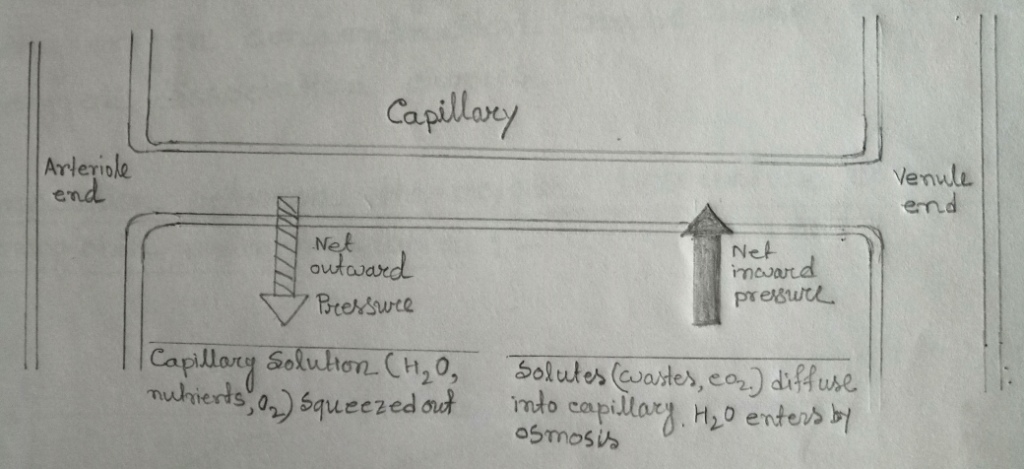 Capillary
Arteriole
end
Venule
end
Net
outward
Pressure
Net
inward
pressure
Capillary Solution (H₂O,
nutrients, O₂) Squeezed out
Solutes (wastes, CO₂) diffuse
into capillary. H₂O enters by
osmosis